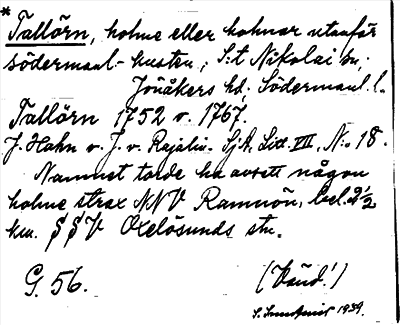 * Tallörn, holme eller holmar utanför
södermanl. kusten, S:t Nikolai sn,
Jönåkers hd, Södermanl. l.
Tallörn 1752 v. 1767.
J. Hahn v. J. v. Rajalin. Sj.A, Litt. VII, N:o 18.
Namnet torde ha avsett någon
holme strax NNV Ramnön, bel. 2 1/2
km. SSV Oxelösunds stn.
G. 56. (Känd!)
1939.